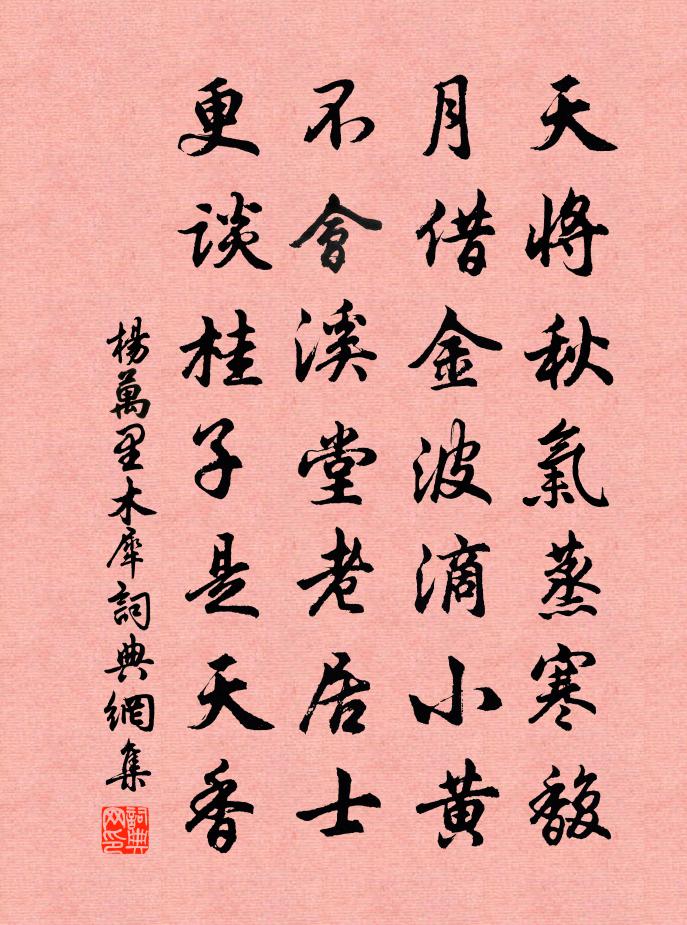 天將秋氣蒸寒馥
月借金波滴小黃
不會溪堂老居士
更談桂子是天香
楊萬里木犀詞典網集
詞典网印